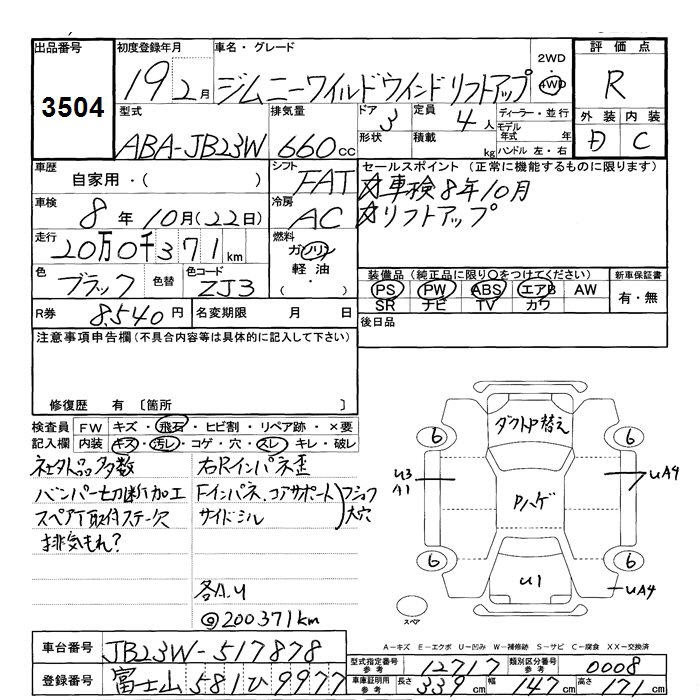 出品番号
3504
初度登録年月
19 2月
車名・グレード
ジムニーワイルドウインド リフトアップ
2WD
・
4WD
評価点
R
型式
ABA-JB23W
排気量
660cc
ドア
3
形状
定員
4人
積載
kg
ディーラー・並行
モデル年式 年
ハンドル 左・右
外装 内装
D C
車歴
自家用・( )
シフト
FAT
セールスポイント (正常に機能するものに限ります)
☆車検8年10月
☆リフトアップ
車検
8年10月(22日)
冷房
AC
走行
20万0千371km
燃料
ガソリン
軽油
( ・ )
色
ブラック
色替
色コード
ZJ3
装備品 (純正品に限り○をつけてください)
PS PW ABS エアB AW
SR ナビ TV カワ
新車保証書
有・無
R券
8,540円
名変期限 月 日
後日品
注意事項申告欄 (不具合内容等は具体的に記入して下さい)
修復歴 有 〔箇所 〕
検査員記入欄
FW キズ・飛石・ヒビ割・リペア跡・×要
内装 キズ・汚レ・コゲ・穴・スレ・キレ・破レ
社外品多数
バンパー切断加工
スペアT取付ステー欠
排気もれ?
右Rインパネ歪
Fインパネ、コアサポート
サイドシル
フショク大穴
各A.U
@200371km
ダクト付替え
6 6
U3
A1
Pハゲ
UA4
6 6
U1
UA4
スペア
A－キズ E－エクボ U－凹み W－補修跡 S－サビ C－腐食 XX－交換済
車台番号
JB23W-517878
登録番号
富士山 581 ひ 9977
型式指定番号
参考
12717
類別区分番号
参考
0008
車庫証明用
参考
長さ 339cm 幅 147cm 高さ 171cm